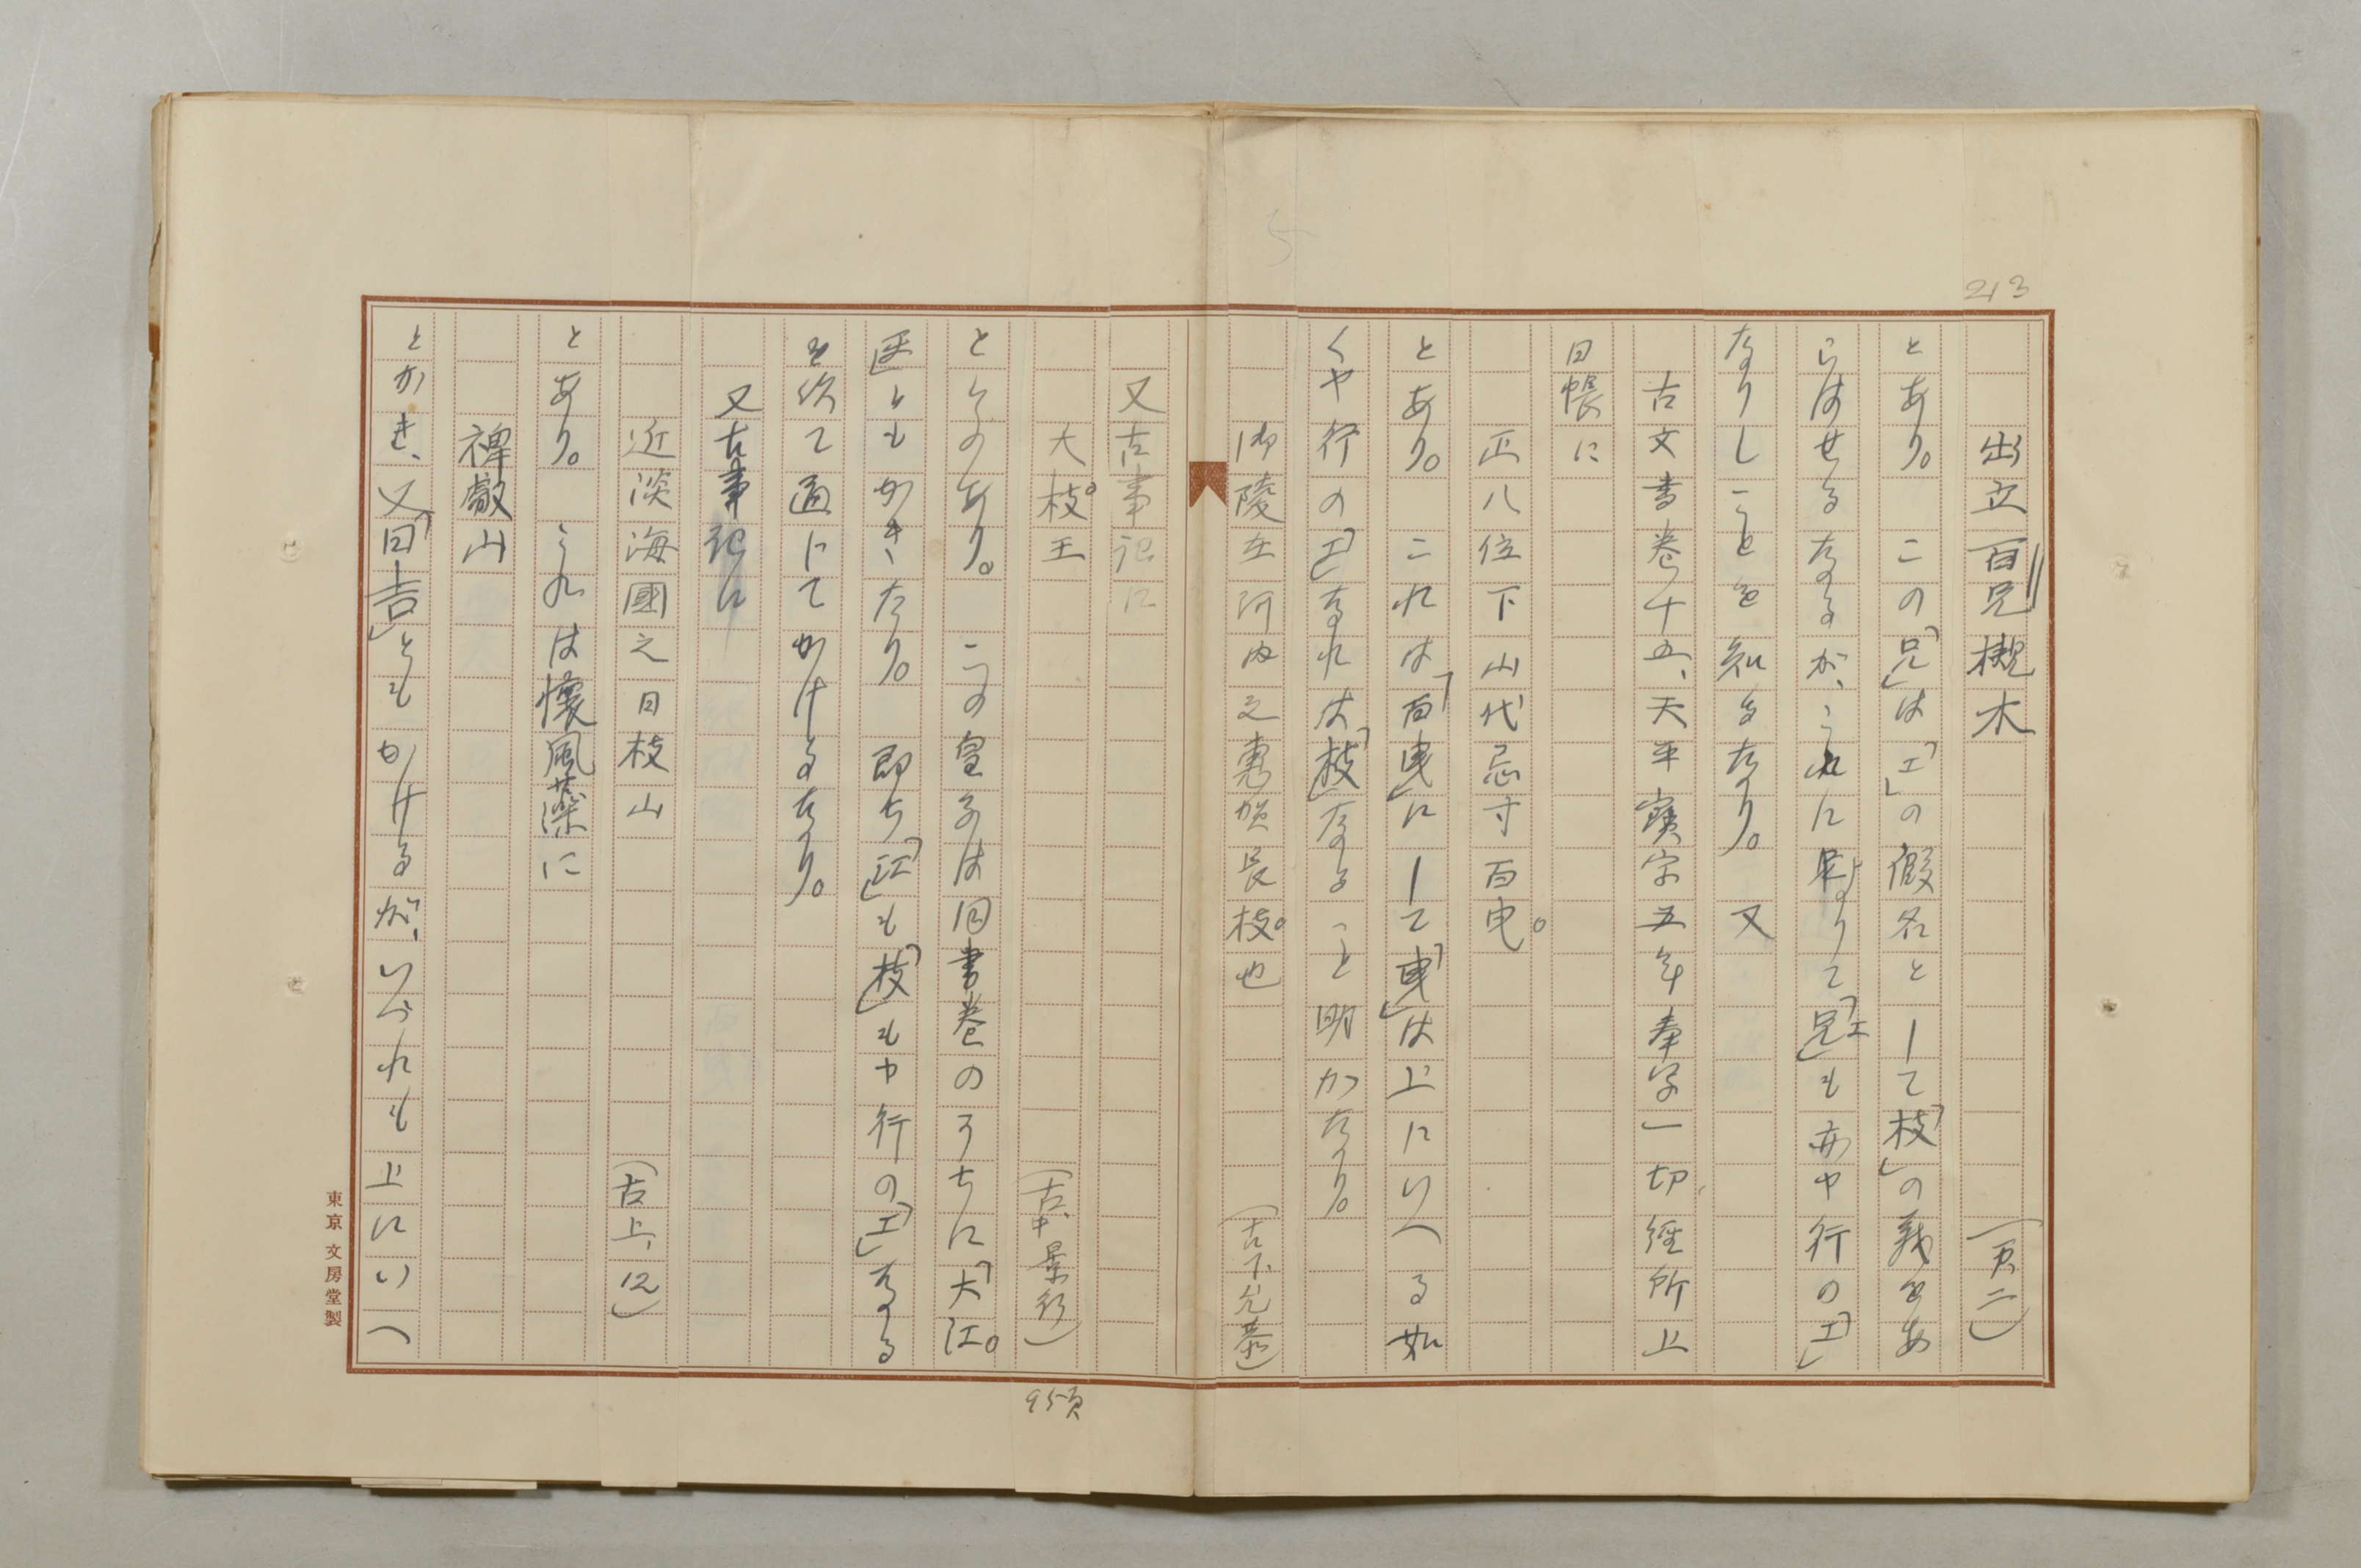 213
出立百兄槻木 (万、二)
とあり。この「兄」は「エ」の假名として「枝」の義をあ
らはせるなるが、これに より て「兄」エも亦ヤ行の「エ」
なりしことを知るなり。又
古文書巻十五、天平寶字五年奉写一切經所上
日帳に
正八位下山代忌寸百曳。
とあり。これは「百曳」にして「曳」は上にいへる如
くヤ行の「エ」なれは「枝」なること明かなり。
御陵在河内之惠賀長枝。也 (古下、允恭)
又古事記に
大枝。王 (古、中、景行)
としるあり。この皇子は同書巻のうちに「大江。
王」ともかきたり。即ち「江」も「枝」もヤ行の「エ」なる
を以て通じてかけるなり。
又古事記に
近淡海國之日枝山 (古上、)
とあり。これは懷風藻に
裨叡山
とかき、又「日吉」ともかけるが、いづれも上にいへ
95頁
東京 文房堂製